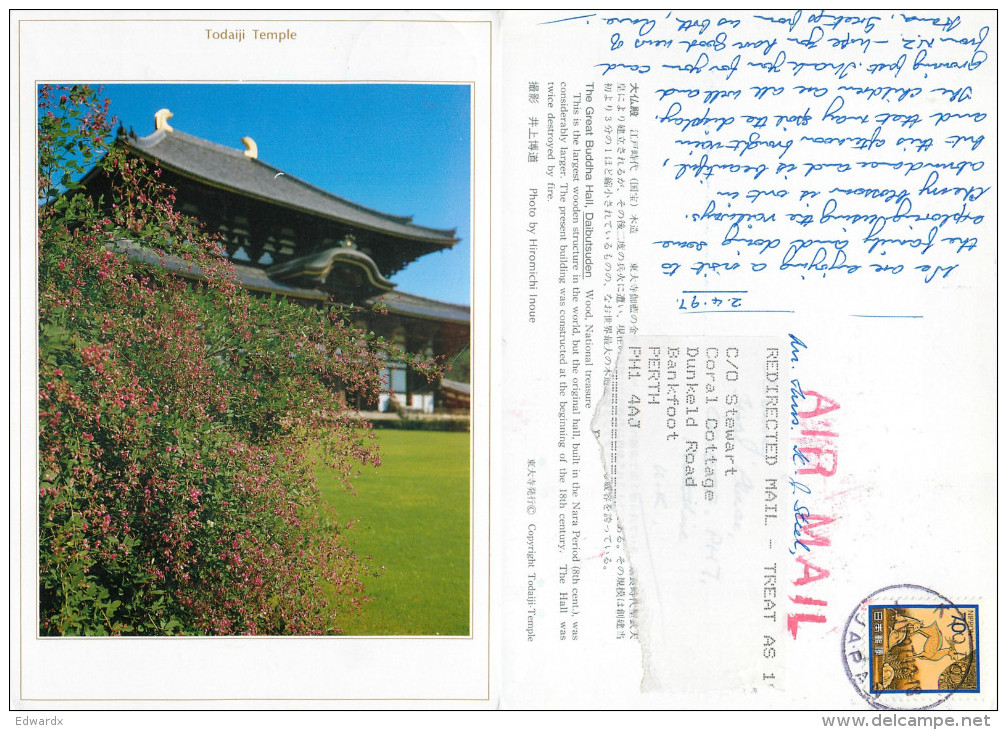 Todaiji Temple
We are enjoying a visit to
the family and doing some
exploring using the railways.
Cherry blossom is out in
abundance and is beautiful,
but this afternoon brought rain
and that may spoil the display.
The children are all well and
growing fast. Thank you for your card
from N.Z. - hope you have good news of
Hana, Greetings from us both,
2.4.97.
大仏殿 江戸時代(国宝)木造 東大寺伽藍の金
皇により建立されるが、その後二度の兵火に遭い、現在
初より3分の1ほど縮小されているものの、なお世界最大の木造
良時代聖武天
ある。その規模は創建当
容を誇っている。
The Great Buddha Hall, Daibutsuden Wood, National treasure
This is the largest wooden structure in the world, but the original hall, built in the Nara Period (8th cent.), was
considerably larger. The present building was constructed at the beginning of the 18th century. The Hall was
twice destroyed by fire.
撮影 井上博道 Photo by Hiromichi Inoue 東大寺発行© Copyright Todaiji-Temple
REDIRECTED MAIL - TREAT AS 1
C/O Stewart
Coral Cottage
Dunkeld Road
Bankfoot
PERTH
PH1 4AJ
AIR MAIL
NIPPON
70
日本郵便
JAPAN
Edwardx
delcampe.net